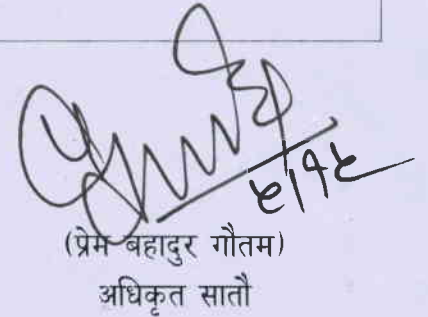 ५/१५
(प्रेम बहादुर गौतम)
अधिकृत सातौ